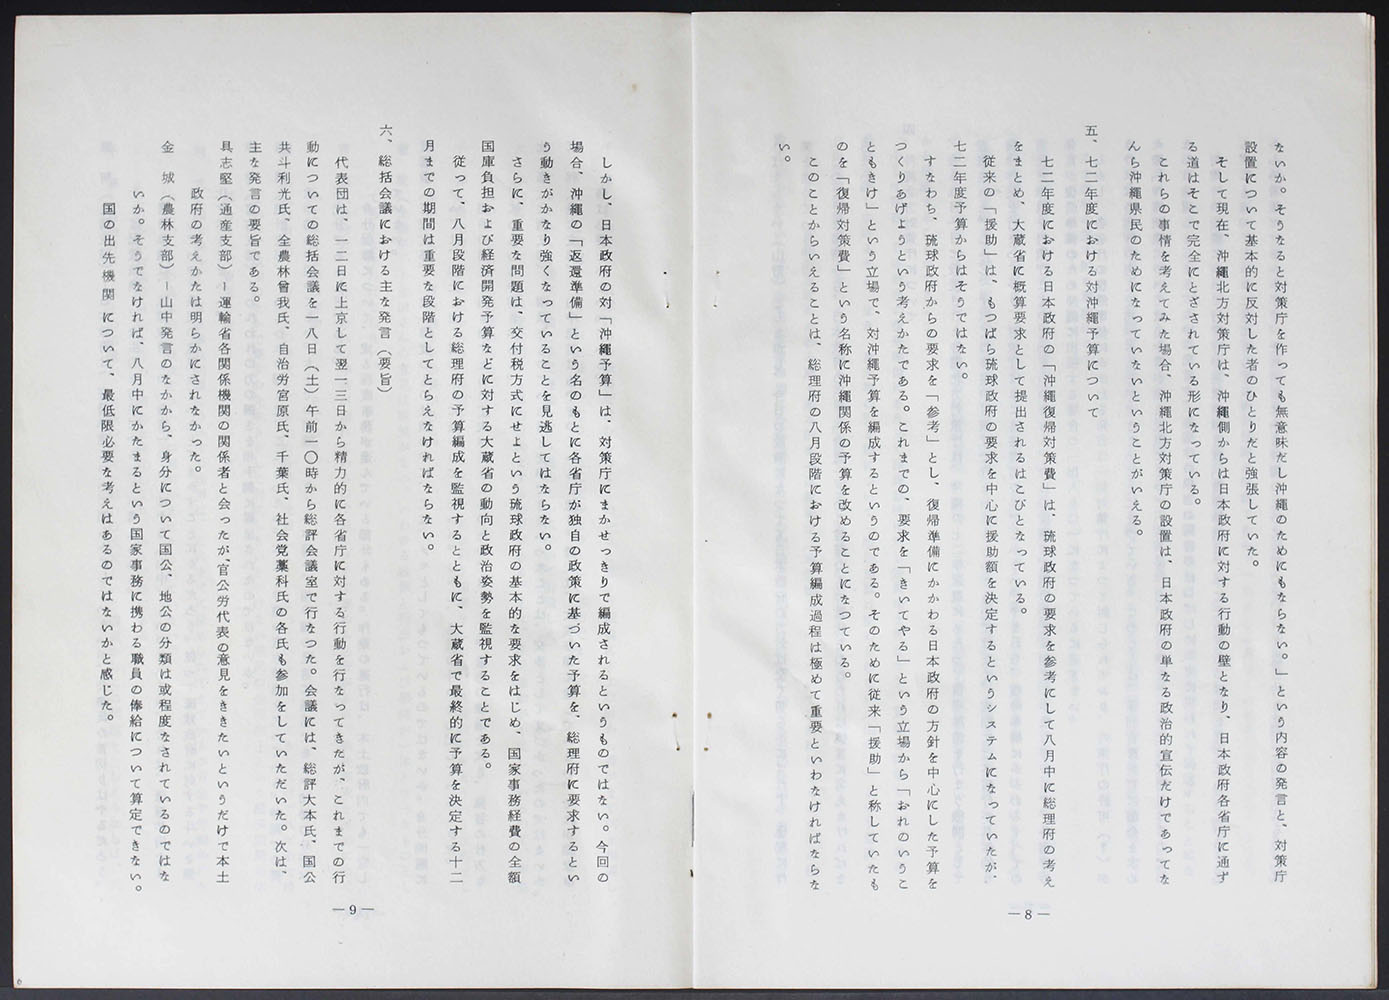 ないか。そうなると対策庁を作っても無意味だし沖縄のためにもならない。」という内容の発言と、対策庁
設置について基本的に反対した者のひとりだと強張していた。
そして現在、沖縄北方対策庁は、沖縄側からは日本政府に対する行動の壁となり、日本政府各省庁に通ず
る道はそこで完全にとざされている形になっている。
これらの事情を考えてみた場合、沖縄北方対策庁の設置は、日本政府の単なる政治的宣伝だけであってな
んら沖縄県民のためになっていないということがいえる。
五、七二年度における対沖縄予算について
七二年度における日本政府の「沖縄復帰対策費」は、琉球政府の要求を参考にして八月中に総理府の考え
をまとめ、大蔵省に概算要求として提出されるはこびとなっている。
従来の「援助」は、もつぱら琉球政府の要求を中心に援助額を決定するというシステムになっていたが、
七二年度予算からはそうではない。
すなわち、琉球政府からの要求を「参考」とし、復帰準備にかかわる日本政府の方針を中心にした予算を
つくりあげようという考えかたである。これまでの、要求を「きいてやる」という立場から「おれのいうこ
ともきけ」という立場で、対沖縄予算を編成するというのである。そのために従来「援助」と称していたも
のを「復帰対策費」という名称に沖縄関係の予算を改めることになつている。
このことからいえることは、総理府の八月段階における予算編成過程は極めて重要といわなければならな
い。
— 8 —
しかし、日本政府の対「沖縄予算」は、対策庁にまかせっきりで編成されるというものではない。今回の
場合、沖縄の「返還準備」という名のもとに各省庁が独自の政策に基づいた予算を、総理府に要求するとい
う動きがかなり強くなっていることを見逃してはならない。
さらに、重要な問題は、交付税方式にせよという琉球政府の基本的な要求をはじめ、国家事務経費の全額
国庫負担および経済開発予算などに対する大蔵省の動向と政治姿勢を監視することである。
従って、八月段階における総理府の予算編成を監視するとともに、大蔵省で最終的に予算を決定する十二
月までの期間は重要な段階としてとらえなければならない。
六、総括会議における主な発言（要旨）
代表団は、一二日に上京して翌一三日から精力的に各省庁に対する行動を行なってきたが、これまでの行
動についての総括会議を一八日（土）午前一〇時から総評会議室で行なつた。会議には、総評大本氏、国公
共斗利光氏、全農林曾我氏、自治労宮原氏、千葉氏、社会党藁科氏の各氏も参加をしていただいた。次は、
主な発言の要旨である。
具志堅（通産支部）ー運輸省各関係機関の関係者と会ったが、官公労代表の意見をききたいというだけで本土
政府の考えかたは明らかにされなかった。
金　城（農林支部）ー山中発言のなかから、身分について国公、地公の分類は或程度なされているのではな
いか。そうでなければ、八月中にかたまるという国家事務に携わる職員の俸給について算定できない。
国の出先機関について、最低限必要な考えはあるのではないかと感じた。
— 9 —